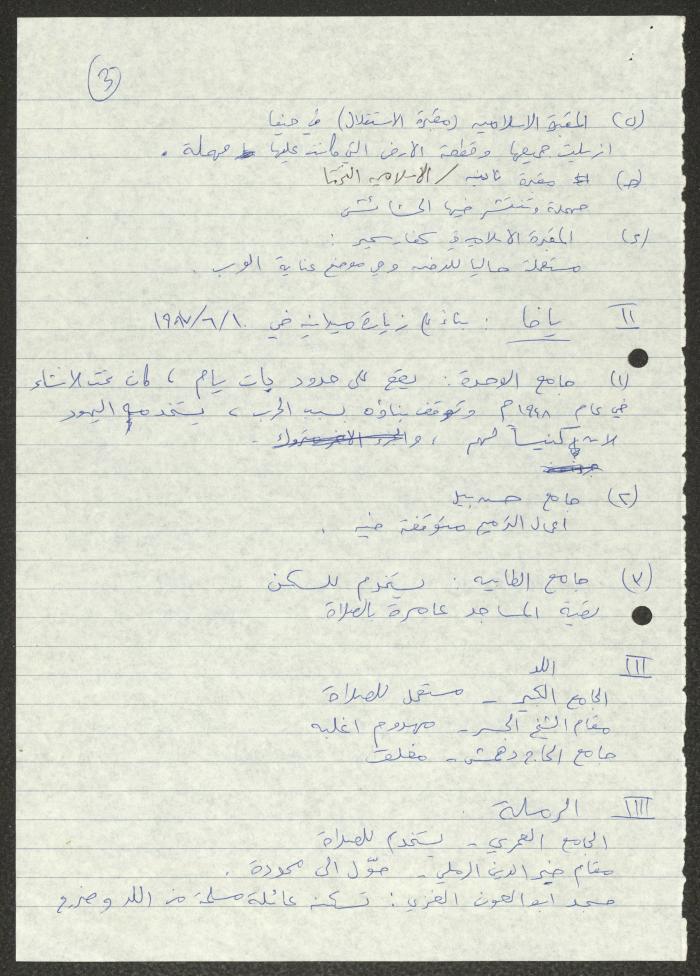 (3)
(٥) المقبرة الاسلامية (مقبرة الاستقلال) في حيفا
ازيلت جميعها وقطعة الارض التي كانت عليها مهملة .
مقبرة ثانية / الاسلامية
مهملة وتنتشر فيها الحشائش
(ي) المقبرة الاسلامية في كفار سمير :
مستعملة حاليا للدفن وهي موضع عناية العرب .
II يافا : بناء على زيارة ميدانية في ١٩٨٧/٦/١٠
(١) جامع الوحدة : يقع على حدود بات يام ، كان تحت الانشاء
في عام ١٩٤٨م وتوقف بناؤه بسبب الحرب ، يستخدمه اليهود
الان كنيساً لهم ،
(٢) جامع حسن بيك
اعمال الترميم متوقفة فيه .
(٣) جامع الطابية : يستخدم للسكن
بقية المساجد عامرة بالصلاة
III اللد
الجامع الكبير - مستعمل للصلاة
مقام الشيخ - مهدوم اغلبه
جامع الحاج دهمش - مغلق
IIII الرملة
الجامع العمري - يستخدم للصلاة
مقام خير الدين الرملي - حوّل الى .
مسجد ابو العون الغزي : تسكنه عائلة مسلمة من اللد وضريح